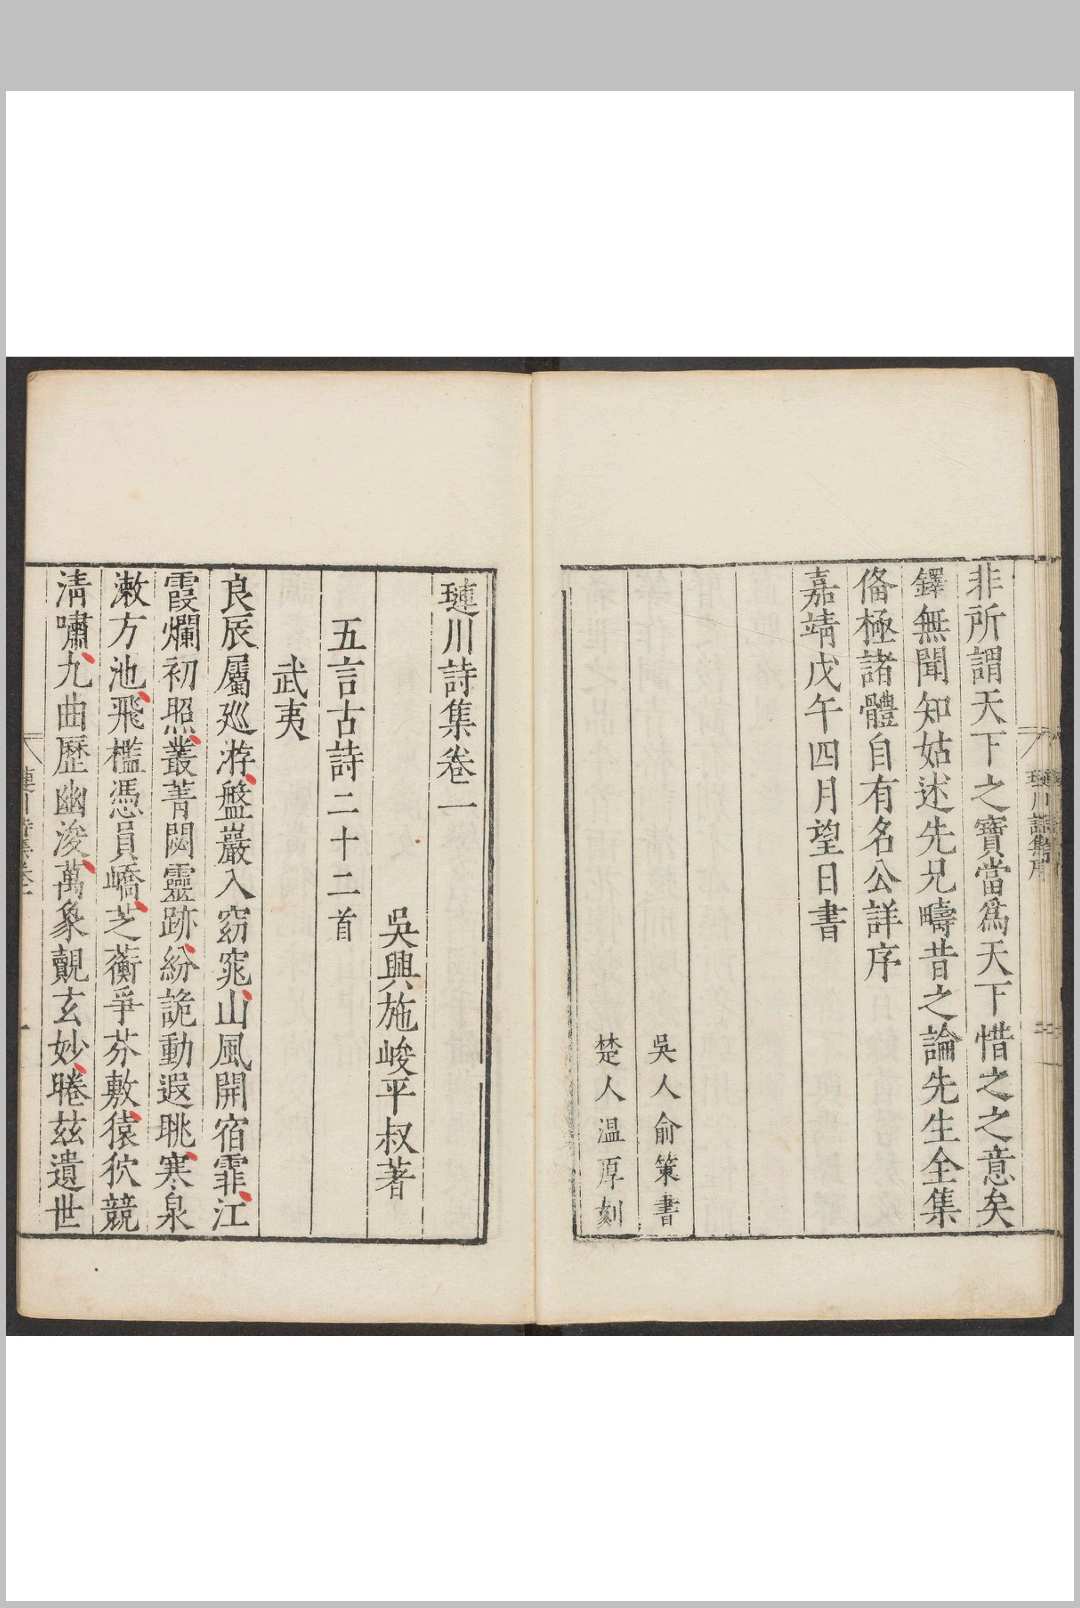 非所謂天下之寶當爲天下惜之之意矣
鐸無聞知姑述先兄疇昔之論先生全集
俻極諸體自有名公詳序
嘉靖戊午四月望日書
吳人俞策書
楚人溫厚刻
璉川詩集卷一
吳興施峻平叔著
五言古詩二十二首
武夷
良辰屬廵游盤巖入窈窕山風開宿霏江
霞爛初照叢菁閟靈跡紛詭動遐眺寒泉
漱方池飛檻憑員嶠芝蘅爭芬敷猿狖競
清嘯九曲歷幽浚萬象覿玄妙睠兹遺世
璉川詩集序